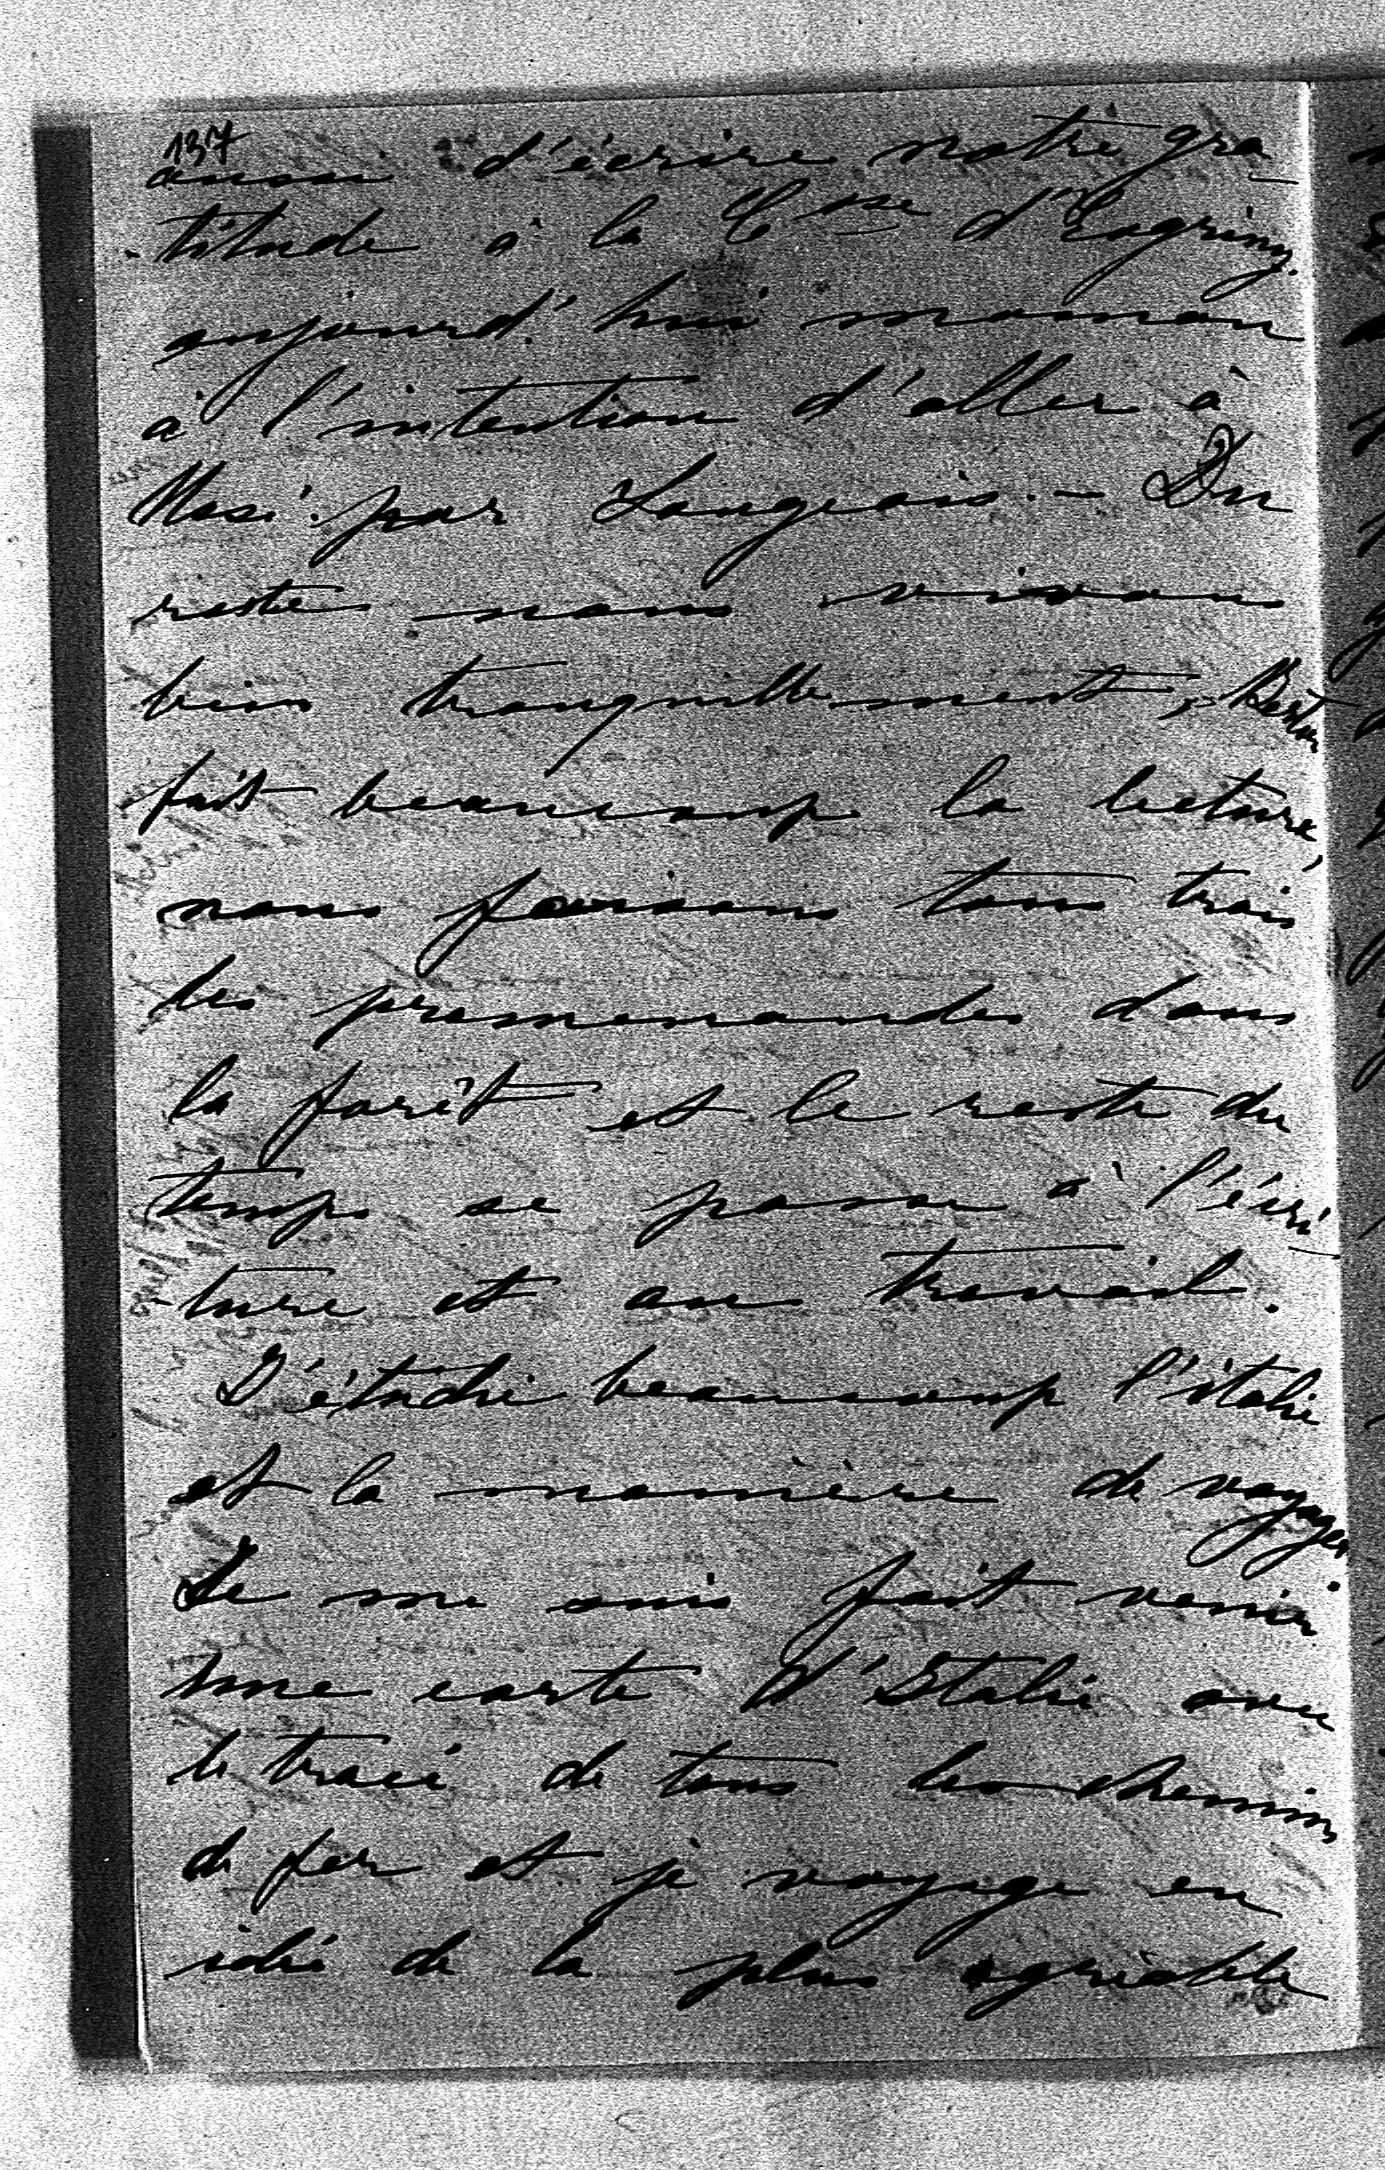 137
aussi d'écrire notre gra-
-titude à la Ctsse d'Eagriny.
aujourd'hui maman
a l'intention d'aller à
Ussé par Langeais. — Du
reste nous vivons
bien tranquillement,
fait beaucoup la lecture,
nous faisons tous trois
des promenandes dans
la forêt et le reste du
temps se passe à l'écri-
-ture et au travail.
J'étudie beaucoup l'Italie
et la manière de voyager
Je me suis fait venir
une carte d'Italie avec
le tracé de tous les chemins
de fer et je voyage en
idée de la plus agréable